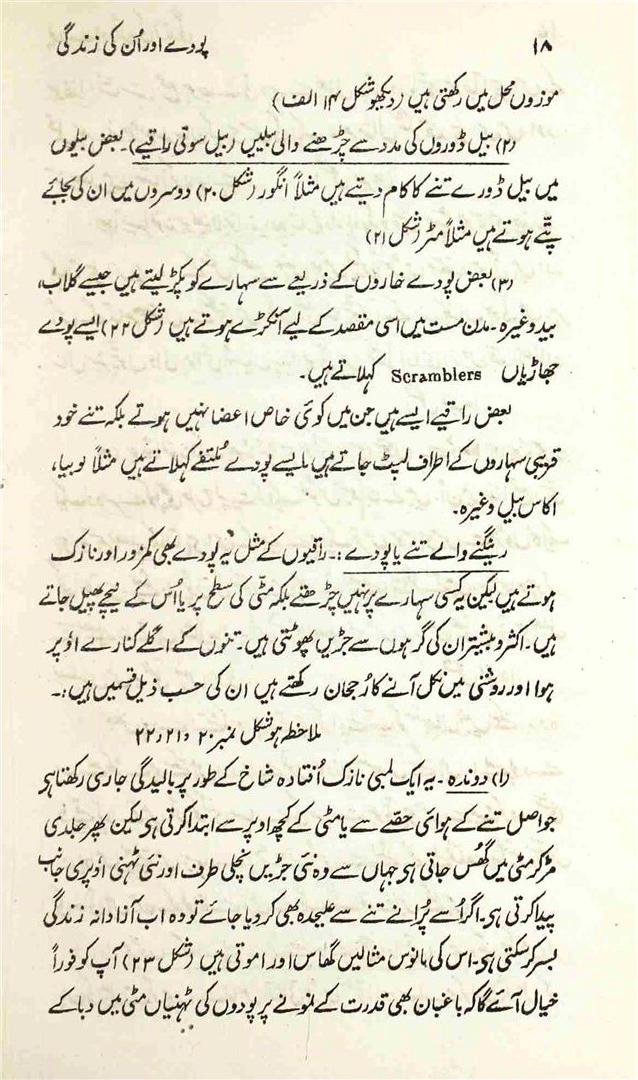 ۱۸ پودے اور اُن کی زندگی
موزوں محل میں رکھتی ہیں (دیکھو شکل ۱۴ الف)
(۲) بیل ڈوروں کی مدد سے چڑھنے والی بیلیں (بیل سوتی راقیے)۔ بعض بیلوں
میں بیل ڈورے تنے کا کام دیتے ہیں مثلاً انگور (شکل ۲۰) دوسروں میں ان کی بجائے
پتّے ہوتے ہیں مثلاً مٹر (شکل ۲۱)
(۳) بعض پودے خاروں کے ذریعے سے سہارے کو پکڑ لیتے ہیں جیسے گلاب،
بید وغیرہ۔ مدن مست میں اسی مقصد کے لیے آنکڑے ہوتے ہیں (شکل ۲۲) ایسے پودے
جھاڑیاں Scramblers کہلاتے ہیں۔
بعض راقیے ایسے ہیں جن میں کوئی خاص اعضا نہیں ہوتے بلکہ تنے خود
قریبی سہاروں کے اطراف لپٹ جاتے ہیں۔ ایسے پودے مُلتفے کہلاتے ہیں مثلاً لوبیا،
اکاس بیل وغیرہ۔
رینگنے والے تنے یا پودے :۔ راقیوں کے مثل یہ پودے بھی کمزور اور نازک
ہوتے ہیں لیکن یہ کسی سہارے پر نہیں چڑھتے بلکہ مٹّی کی سطح پر یا اُس کے نیچے پھیل جاتے
ہیں۔ اکثر و بیشتر ان کی گرہوں سے جڑیں پھوٹتی ہیں۔ تنوں کے اگلے کنارے اوٗپر
ہوا اور روشنی میں نکل آنے کا رُجحان رکھتے ہیں ان کی حسب ذیل قسمیں ہیں :۔
ملاحظہ ہو شکل نمبر ۲۰، ۲۱، ۲۲
(۱) دوندہ۔ یہ ایک لمبی نازک اُفتادہ شاخ کے طور پر بالیدگی جاری رکھتا ہی
جو اصل تنے کے ہوائی حصّے سے یا مٹی کے کچھ اوپر سے ابتدا کرتی ہی لیکن پھر جلدی
مڑ کر مٹی میں گھُس جاتی ہی جہاں سے وہ نئی جڑیں نچلی طرف اور نئی ٹہنی اوٗپری جانب
پیدا کرتی ہی۔ اگر اُسے پُرانے تنے سے علیحدہ بھی کر دیا جائے تو وہ اب آزادانہ زندگی
بسر کر سکتی ہی۔ اس کی مانوس مثالیں گھاس اور اموتی ہیں (شکل ۲۳) آپ کو فوراً
خیال آئے گا کہ باغبان بھی قدرت کے نمونے پر پودوں کی ٹہنیاں مٹی میں دبا کے